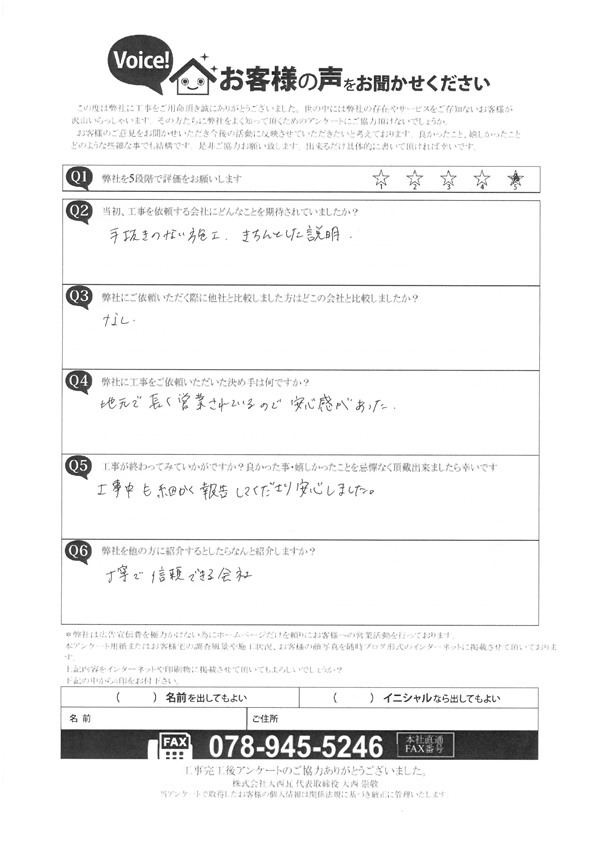 Voice!
お客様の声をお聞かせください
この度は弊社に工事をご用命頂き誠にありがとうございました。世の中には弊社の存在やサービスをご存知ないお客様が
沢山いらっしゃいます。その方たちに弊社をよく知って頂くためのアンケートにご協力頂けないでしょうか。
お客様のご意見をお聞かせいただき今後の活動に反映させていただきたいと考えております。良かったこと、嬉しかったこと
どのような些細な事でも結構です。是非ご協力お願い致します。出来るだけ具体的に書いて頂ければ幸いです。
Q1 弊社を5段階で評価をお願いします 1 2 3 4 5
Q2 当初、工事を依頼する会社にどんなことを期待されていましたか?
手抜きのない施工、きちんとした説明.
Q3 弊社にご依頼いただく際に他社と比較しました方はどこの会社と比較しましたか?
なし.
Q4 弊社に工事をご依頼いただいた決め手は何ですか?
地元で長く営業されているので安心感があった.
Q5 工事が終わってみていかがですか?良かった事・嬉しかったことを忌憚なく頂戴出来ましたら幸いです
工事中も細かく報告してくださり安心しました。
Q6 弊社を他の方に紹介するとしたらなんと紹介しますか?
丁寧で信頼できる会社
*弊社は広告宣伝費を極力かけない為にホームページだけを頼りにお客様への営業活動を行っております。
本アンケート用紙またはお客様宅の調査風景や施工状況、お客様の顔写真を随時ブログ形式のインターネットに掲載させて頂いております。
上記内容をインターネットや印刷物に掲載させて頂いてもよろしいでしょうか?
下記の中から○印をお付下さい。
( ) 名前を出してもよい ( ) イニシャルなら出してもよい
名 前 ご住所
FAX 078-945-5246 本社直通 FAX番号
工事完工後アンケートのご協力ありがとうございました。
株式会社大西瓦 代表取締役 大西 崇敬
当アンケートで取得したお客様の個人情報は関係法規に基づき厳正に管理いたします